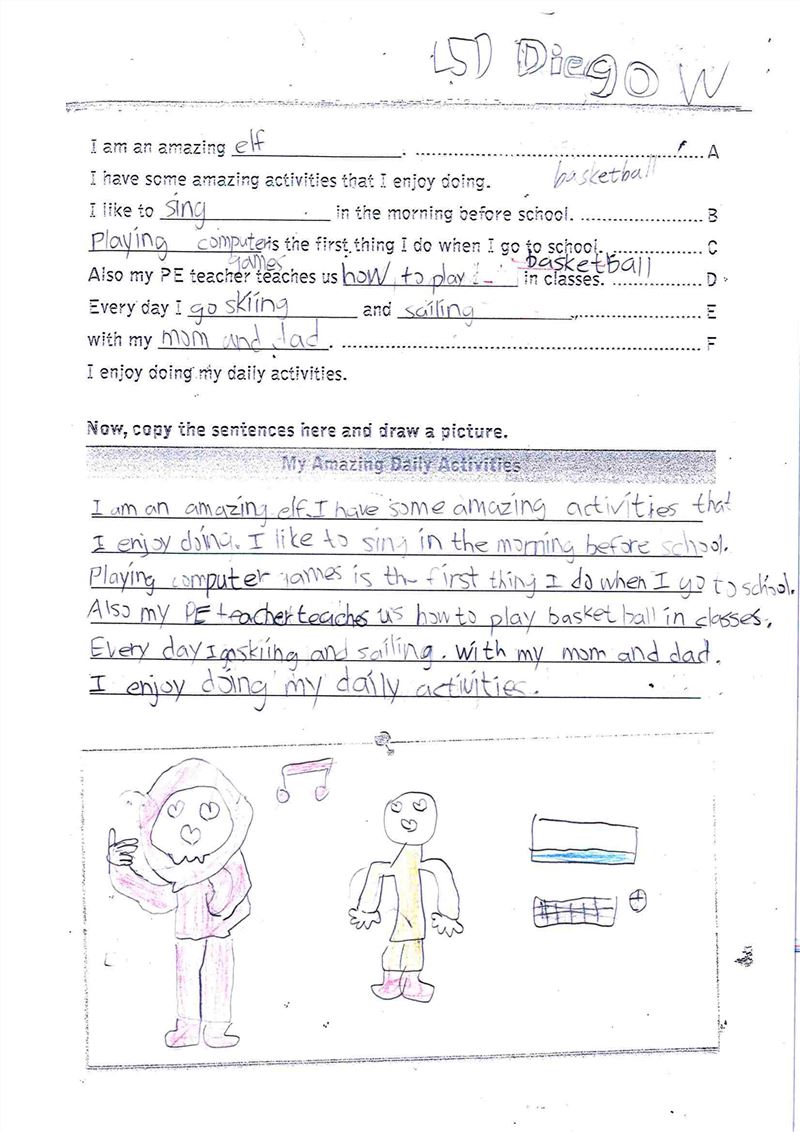 (5) Diego W
I am an amazing elf. A
I have some amazing activities that I enjoy doing. basketball
I like to sing in the morning before school. B
Playing computer games is the first thing I do when I go to school. C
Also my PE teacher teaches us how to play basketball in classes. D
Every day I go skiing and sailing E
with my mom and dad. F
I enjoy doing my daily activities.
Now, copy the sentences here and draw a picture.
My Amazing Daily Activities
I am an amazing elf. I have some amazing activities that
I enjoy doing. I like to sing in the morning before school.
Playing computer games is the first thing I do when I go to school.
Also my PE teacher teaches us how to play basket ball in classes.
Every day I go skiing and sailing. with my mom and dad.
I enjoy doing my daily activities.